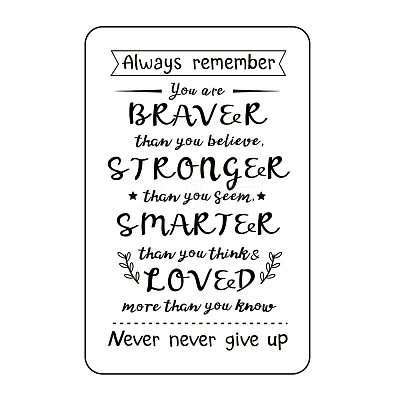 Always remember
You are
BRAVER
than you believe,
STRONGER
than you seem,
SMARTER
than you think &
LOVED
more than you know
Never never give up